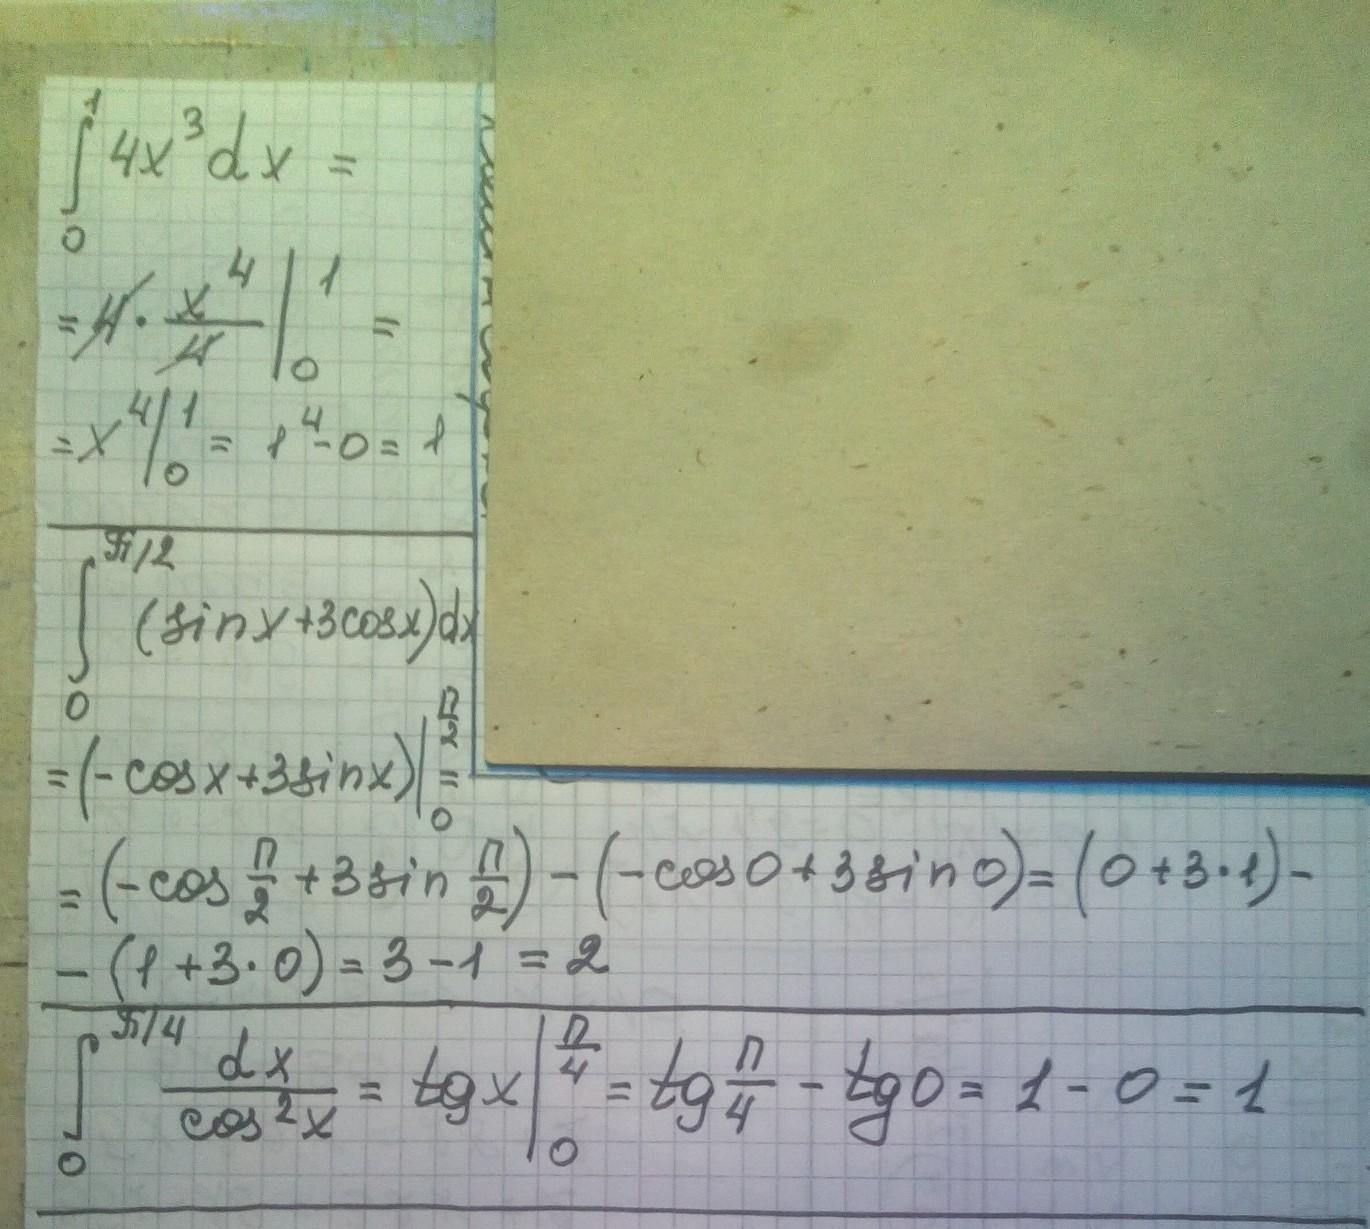 ∫₀¹ 4x³dx =
= 4 · x⁴/4 |₀¹ =
= x⁴|₀¹ = 1⁴-0 = 1
∫₀^(π/2) (sinx+3cosx)dx
= (-cosx+3sinx)|₀^(π/2) =
= (-cos π/2 + 3sin π/2) - (-cos0+3sin0) = (0+3·1) -
- (1+3·0) = 3-1 = 2
∫₀^(π/4) dx/cos²x = tgx|₀^(π/4) = tg π/4 - tg0 = 1-0 = 1